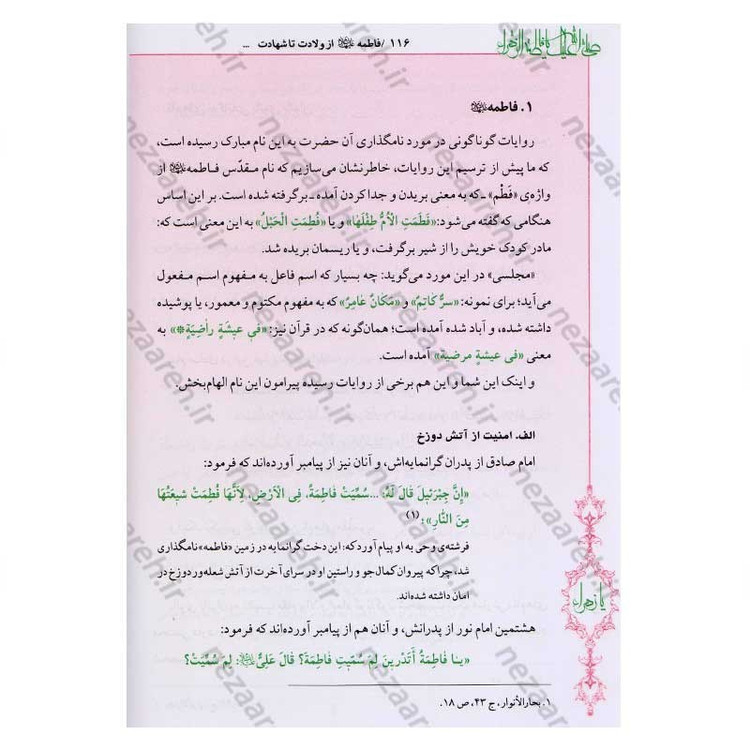 ۱۱۶ /فاطمه از ولادت تا شهادت ...
۱. فاطمه
روایات گوناگونی در مورد نامگذاری آن حضرت به این نام مبارک رسیده است،
که ما پیش از ترسیم این روایات، خاطرنشان می‌سازیم که نام مقدّس فـاطمه از
واژه‌ی «فَطْم» ـ که به معنی بریدن و جدا کردن آمده ـ برگرفته شده است. بر این اساس
هنگامی که گفته می‌شود: «فَطَمَتِ الْأُمُّ طِفْلَهَا» و یا «فُطِمَتِ الْحَبْلُ» به این معنی است که:
مادر کودک خویش را از شیر برگرفت، و یا ریسمان بریده شد.
«مجلسی» در این مورد می‌گوید: چه بسیار که اسم فاعل به مفهوم اسـم مـفعول
می‌آید؛ برای نمونه: «سِرٌّ كَاتِمٌ» و «مَكَانٌ عَامِرٌ» که به مفهوم مکتوم و معمور، یا پوشیده
داشته شده، و آباد شده آمده است؛ همان‌گونه که در قرآن نیز: «فی عیشَةٍ راضِیَةٍ» به
معنی «فی عیشةٍ مرضیة» آمده است.
و اینک این شما و این هم برخی از روایات رسیده پیرامون این نام الهام‌بخش.
الف. امنیت از آتش دوزخ
امام صادق از پدران گرانمایه‌اش، و آنان نیز از پیامبر آورده‌اند که فرمود:
«إِنَّ جِبْرَئِيلَ قَالَ لَهُ: ...سُمِّيَتْ فَاطِمَةُ، فِى الْأَرْضِ، لِأَنَّهَا فُطِمَتْ شِيعَتُهَا
مِنَ النَّارِ»؛ (۱)
فرشته‌ی وحی به او پیام آورد که: این دخت گرانمایه در زمین «فاطمه» نامگذاری
شد، چرا که پیروان کمال‌جو و راستین او در سرای آخرت از آتش شعله‌ور دوزخ در
امان داشته شده‌اند.
هشتمین امام نور از پدرانش، و آنان هم از پیامبر آورده‌اند که فرمود:
«یـا فَاطِمَةُ أَتَدْرِينَ لِمَ سُمِّيتِ فَاطِمَةَ؟ قَالَ عَلِيٌّ: لِمَ سُمِّيَتْ؟
یا زهراء
۱. بحارالأنوار، ج ۴۳، ص ۱۸.
nezaareh.ir